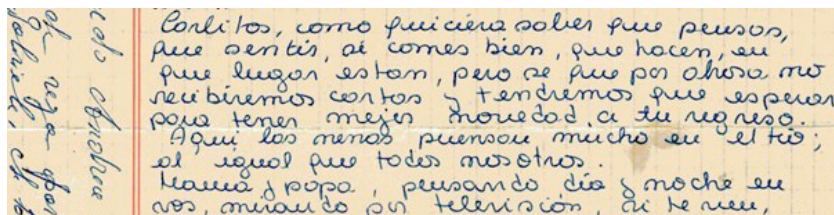 Carlitos, como quiciera saber que pensas,
que sentis, si comes bien, que hacen, en
que lugar estan, pero se que por ahora no
recibiremos cartas y tendremos que esperar
para tener mejor novedad, a tu regreso.
Aqui las nenas piensan mucho en el tio;
al igual que todos nosotros.
Mama y papa, pensando dia y noche en
vos, mirando por television, si te ven,